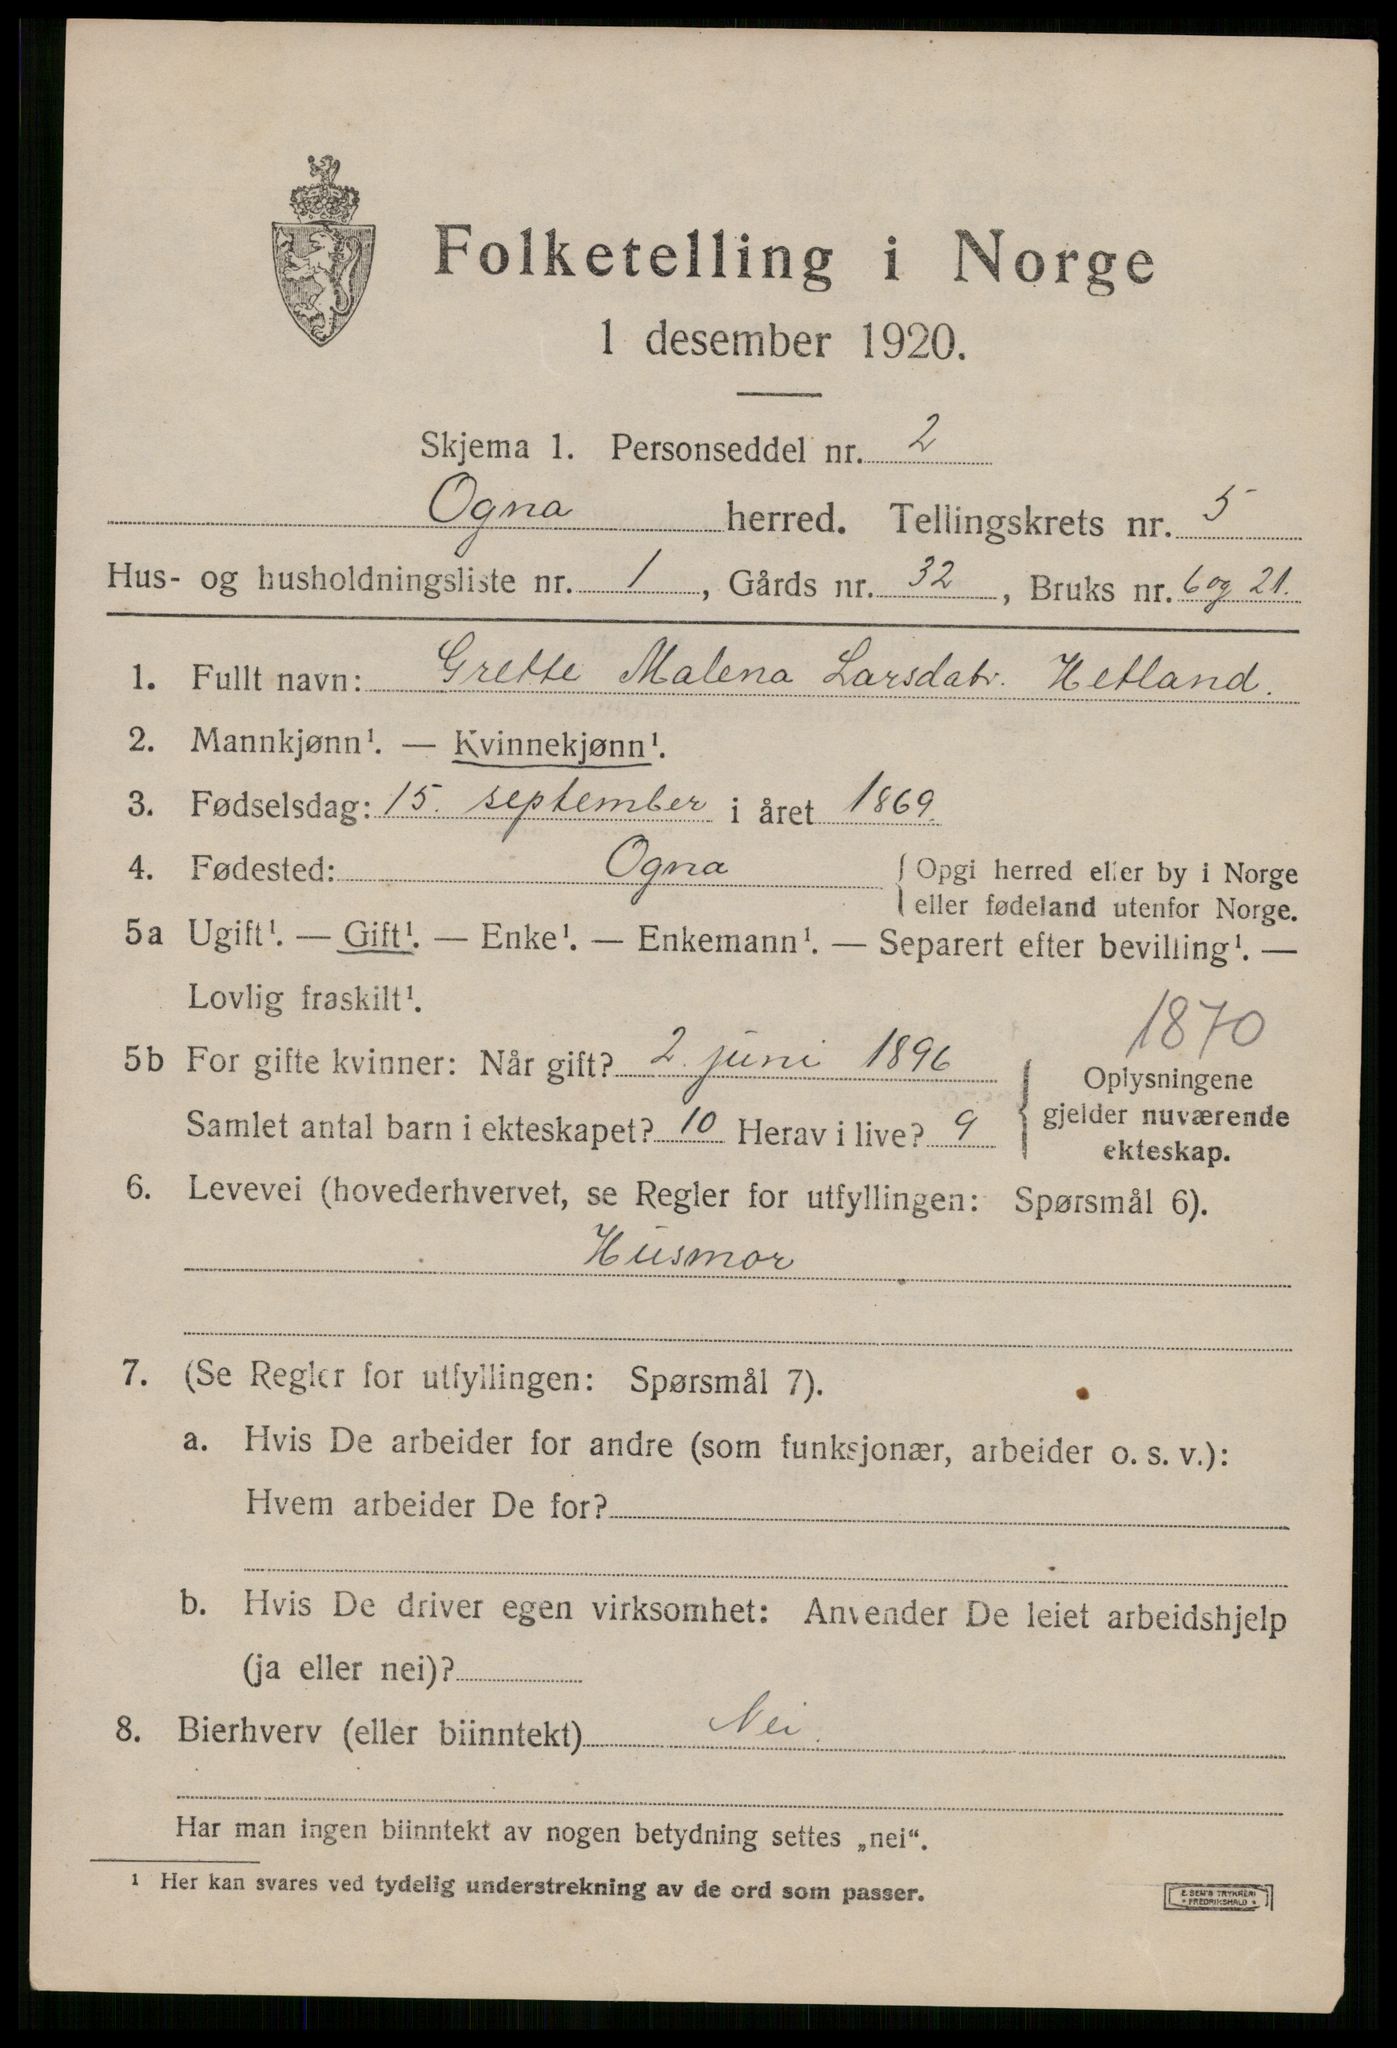 Folketelling i Norge
1 desember 1920.
Skjema 1. Personseddel nr. 2
Ogna herred. Tellingskrets nr. 5
Hus- og husholdningsliste nr. 1, Gårds nr. 32, Bruks nr. 6 og 21.
1. Fullt navn: Grette Malena Larsdatr. Hetland.
2. Mannkjønn¹. — Kvinnekjønn¹.
3. Fødselsdag: 15. september i året 1869.
4. Fødested: Ogna { Opgi herred eller by i Norge
eller fødeland utenfor Norge.
5a Ugift¹. — Gift¹. — Enke¹. — Enkemann¹. — Separert efter bevilling¹. —
Lovlig fraskilt¹.
1870
5b For gifte kvinner: Når gift? 2. juni 1896
Samlet antal barn i ekteskapet? 10 Herav i live? 9
{ Oplysningene
gjelder nuværende
ekteskap.
6. Levevei (hovederhvervet, se Regler for utfyllingen: Spørsmål 6).
Husmor
7. (Se Regler for utfyllingen: Spørsmål 7).
a. Hvis De arbeider for andre (som funksjonær, arbeider o. s. v.):
Hvem arbeider De for?
b. Hvis De driver egen virksomhet: Anvender De leiet arbeidshjelp
(ja eller nei)?
8. Bierhverv (eller biinntekt) Nei.
Har man ingen biinntekt av nogen betydning settes „nei“.
¹ Her kan svares ved tydelig understrekning av de ord som passer.
E. SEM'S TRYKKERI
• FREDRIKSHALD •